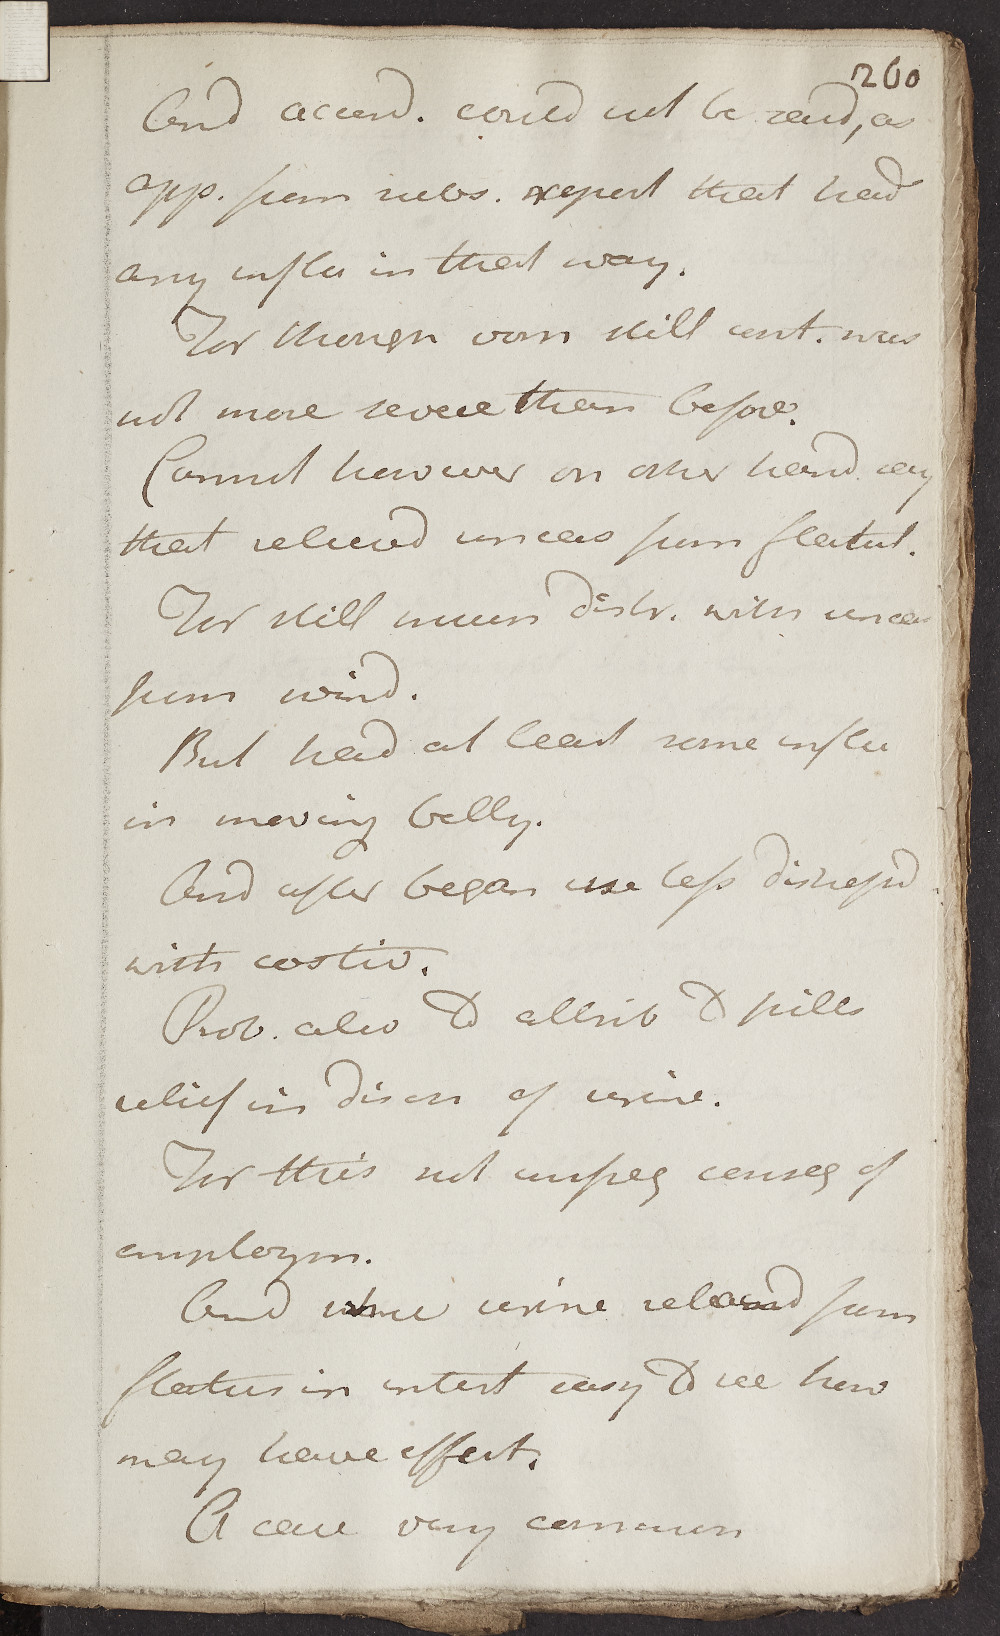 260
And accord. could not be said, as
app. from subs. report that had
any influ in that way.
For though vom still cont. was
not more severe than before.
Cannot however on other hand say
that relieved uneas from flatul.
For still much distr. with uneas
from wind.
But had at least some influ
in moving belly.
And after began use less distressd
with costiv.
Prob. also to attrib to pills
relief in disch of urine.
For this not unfreq conseq of
employm.
And where urine retaind from
flatus in intest easy to see how
may have effect.
A case very common